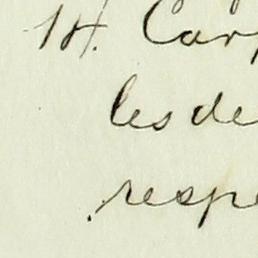 14. Car
les de
respe